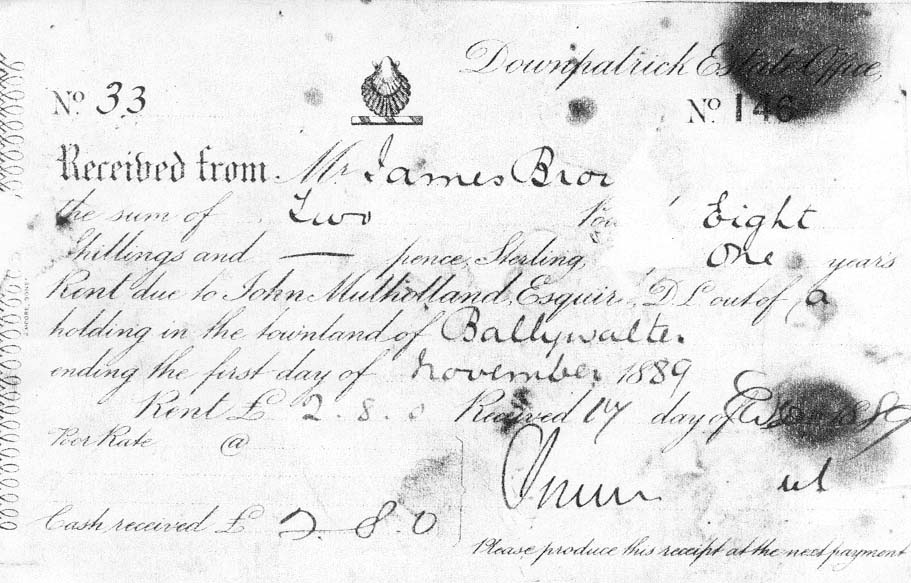 Downpatrick Estate Office,
No. 33
No. 146
Received from Mr James
the sum of Two Eight
Shillings and — pence, Sterling, One years
Rent due to John Mulholland, Esquire, D.L. out of a
holding in the townland of Ballywalter
ending the first day of November 1889
Rent £ 2. 8. 0 Received 17 day of 1889
Poor Rate, @
Cash received £ 2. 8. 0
Please produce this receipt at the next payment